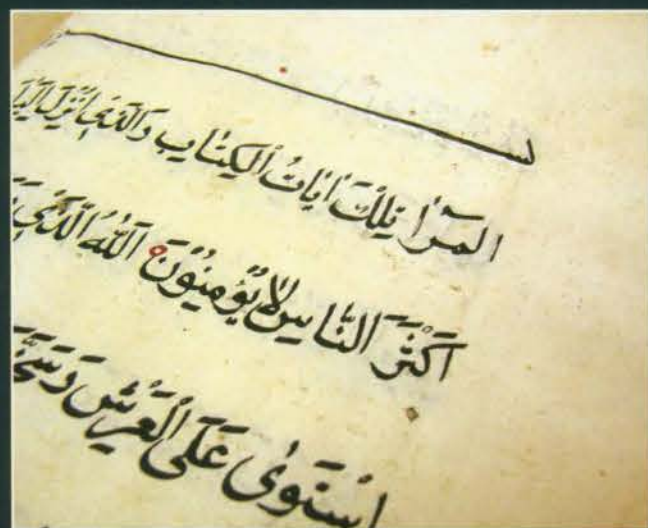 المٓرٰا تِلْكَ اٰيَاتُ الْكِتَابِ وَالَّذٖى اُنْزِلَ
اَكْثَرَ النَّاسِ لَا يُؤْمِنُوْنَ اَللّٰهُ الَّذٖى
اسْتَوٰى عَلَى الْعَرْشِ